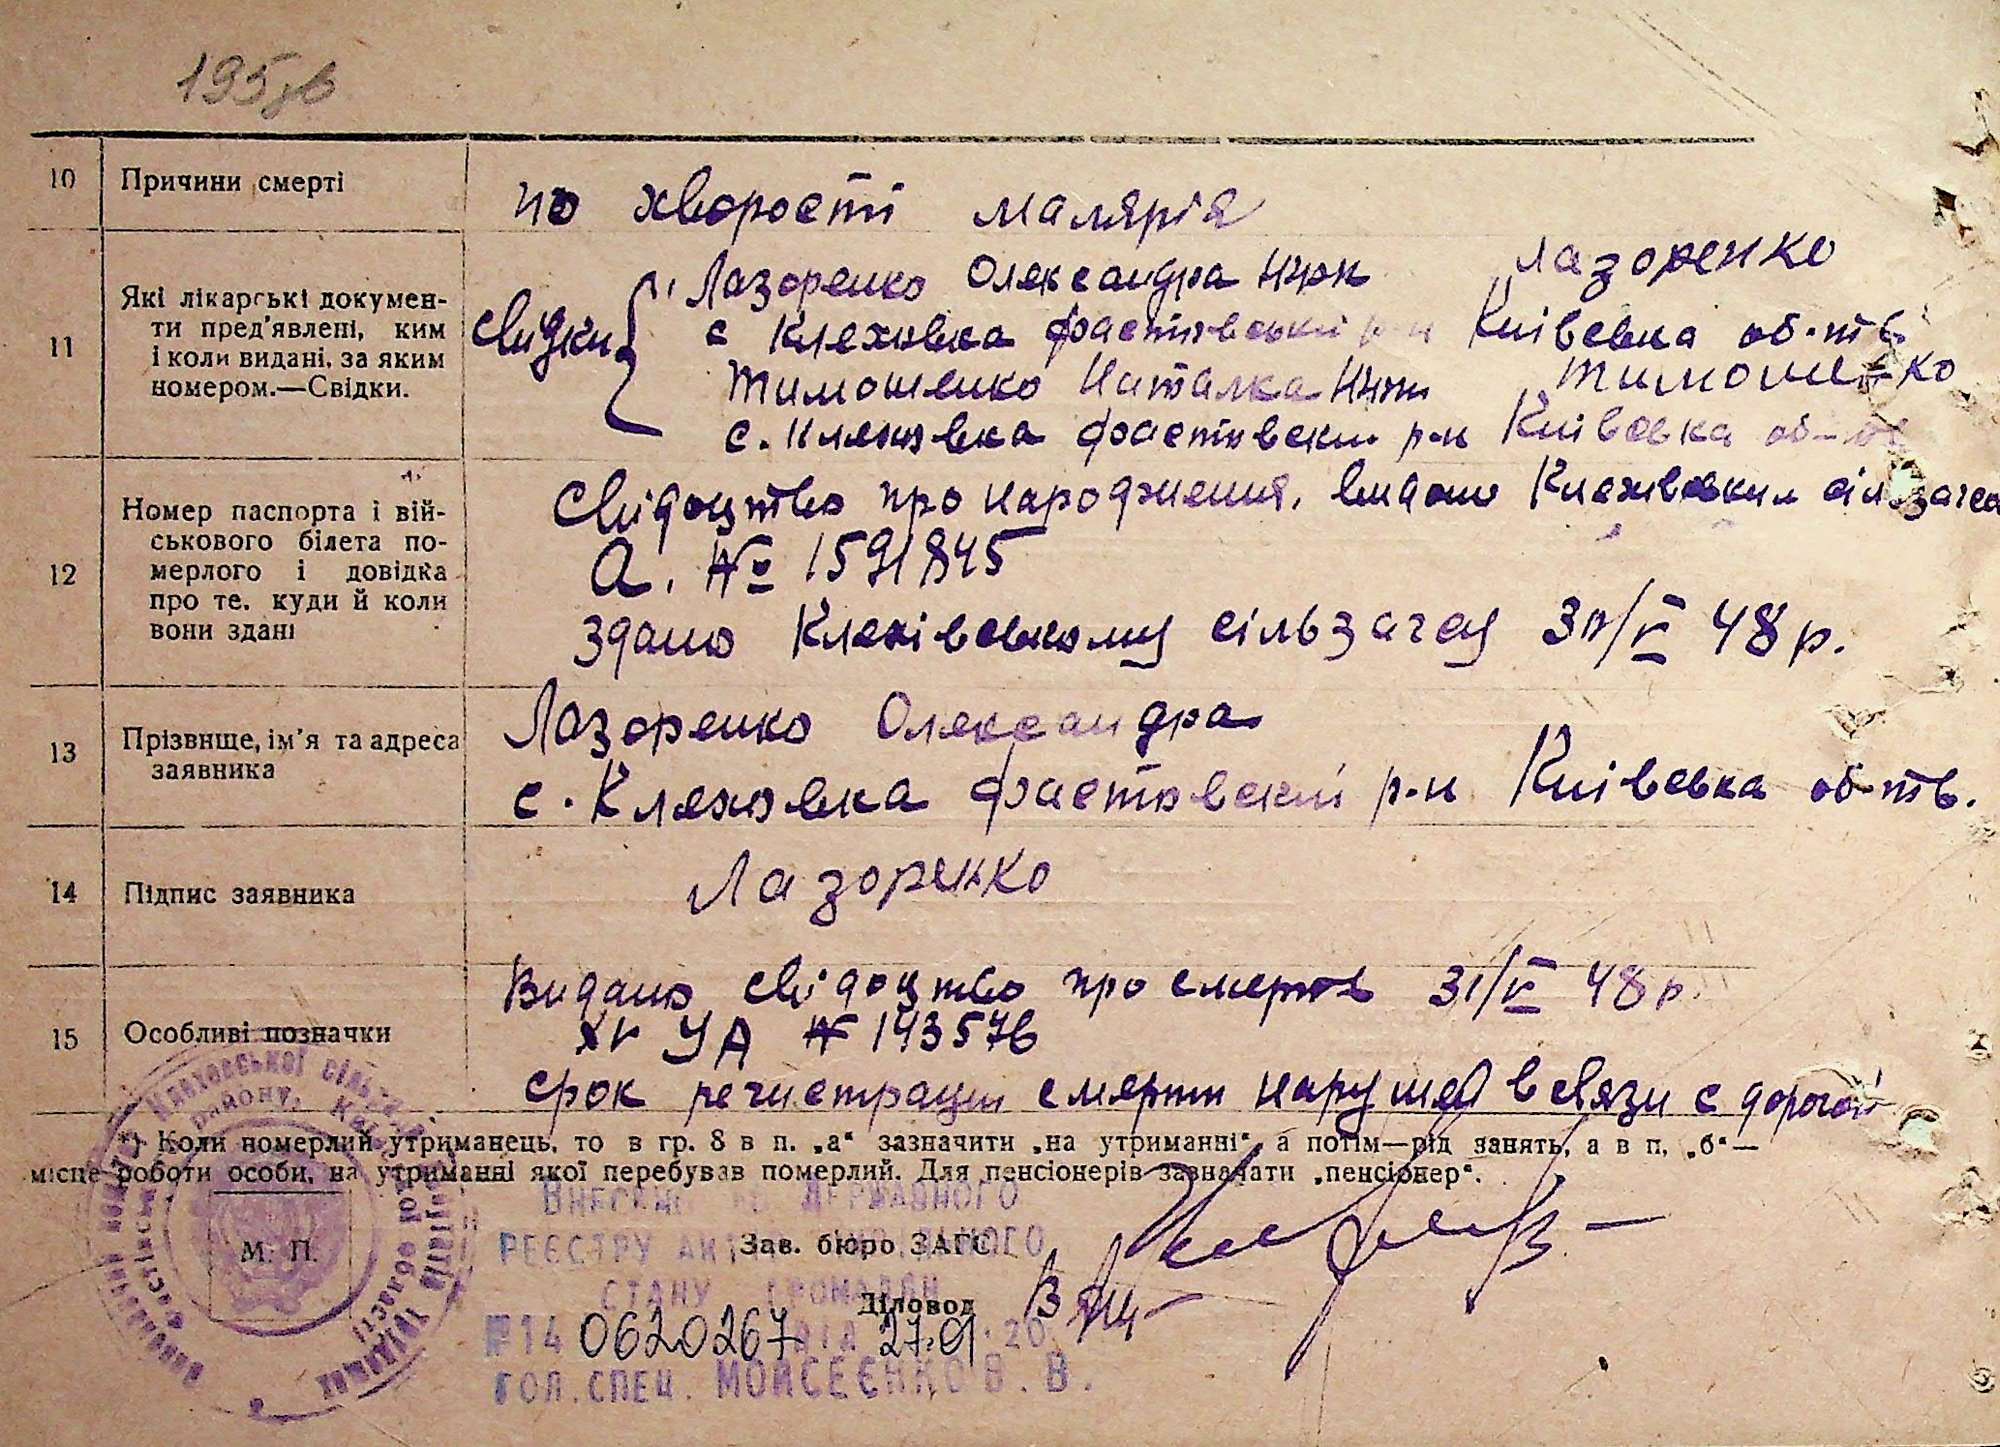 195
10 Причини смерті
по хворості малярія
11 Які лікарські докумен-
ти пред'явлені, ким
і коли видані, за яким
номером.—Свідки.
свидки
1 Лазоренко Олександра Лазоренко
с Кляховка фастовський р-н Київська об-ть
Тимошенко Наталка Тимошенко
с. Кляховка фастовски р-н Київська об-ть
12 Номер паспорта і вій-
ськового білета по-
мерлого і довідка
про те, куди й коли
вони здані
Свидоцтво про народження, видано Кляхівським сільзагсо
А. № 1591845
здано Кляхівському сільзагсу 30/V 48 р.
13 Прізвище, ім'я та адреса
заявника
Лазоренко Олександра
с. Кляховка фастовский р-н Київська об-ть.
14 Підпис заявника
Лазоренко
15 Особливі позначки
Видано свидоцтво про смерть 31/V 48 р.
УА № 143576
срок регистрации смерти нарушен в связи с дорогой
*) Коли померлий утриманець, то в гр. 8 в п. „а“ зазначити „на утриманні“, а потім—рід занять, а в п. „б“—
місце роботи особи, на утриманні якої перебував померлий. Для пенсіонерів зазначати „пенсіонер“.
ВНЕСЕНО ДО ДЕРЖАВНОГО
РЕЄСТРУ АКТІВ ЦИВІЛЬНОГО
СТАНУ ГРОМАДЯН
М. П.
Зав. бюро ЗАГС
Діловод
№14 0620267 ВІД 27.01.20
ГОЛ. СПЕЦ. МОЙСЕЄНКО В. В.